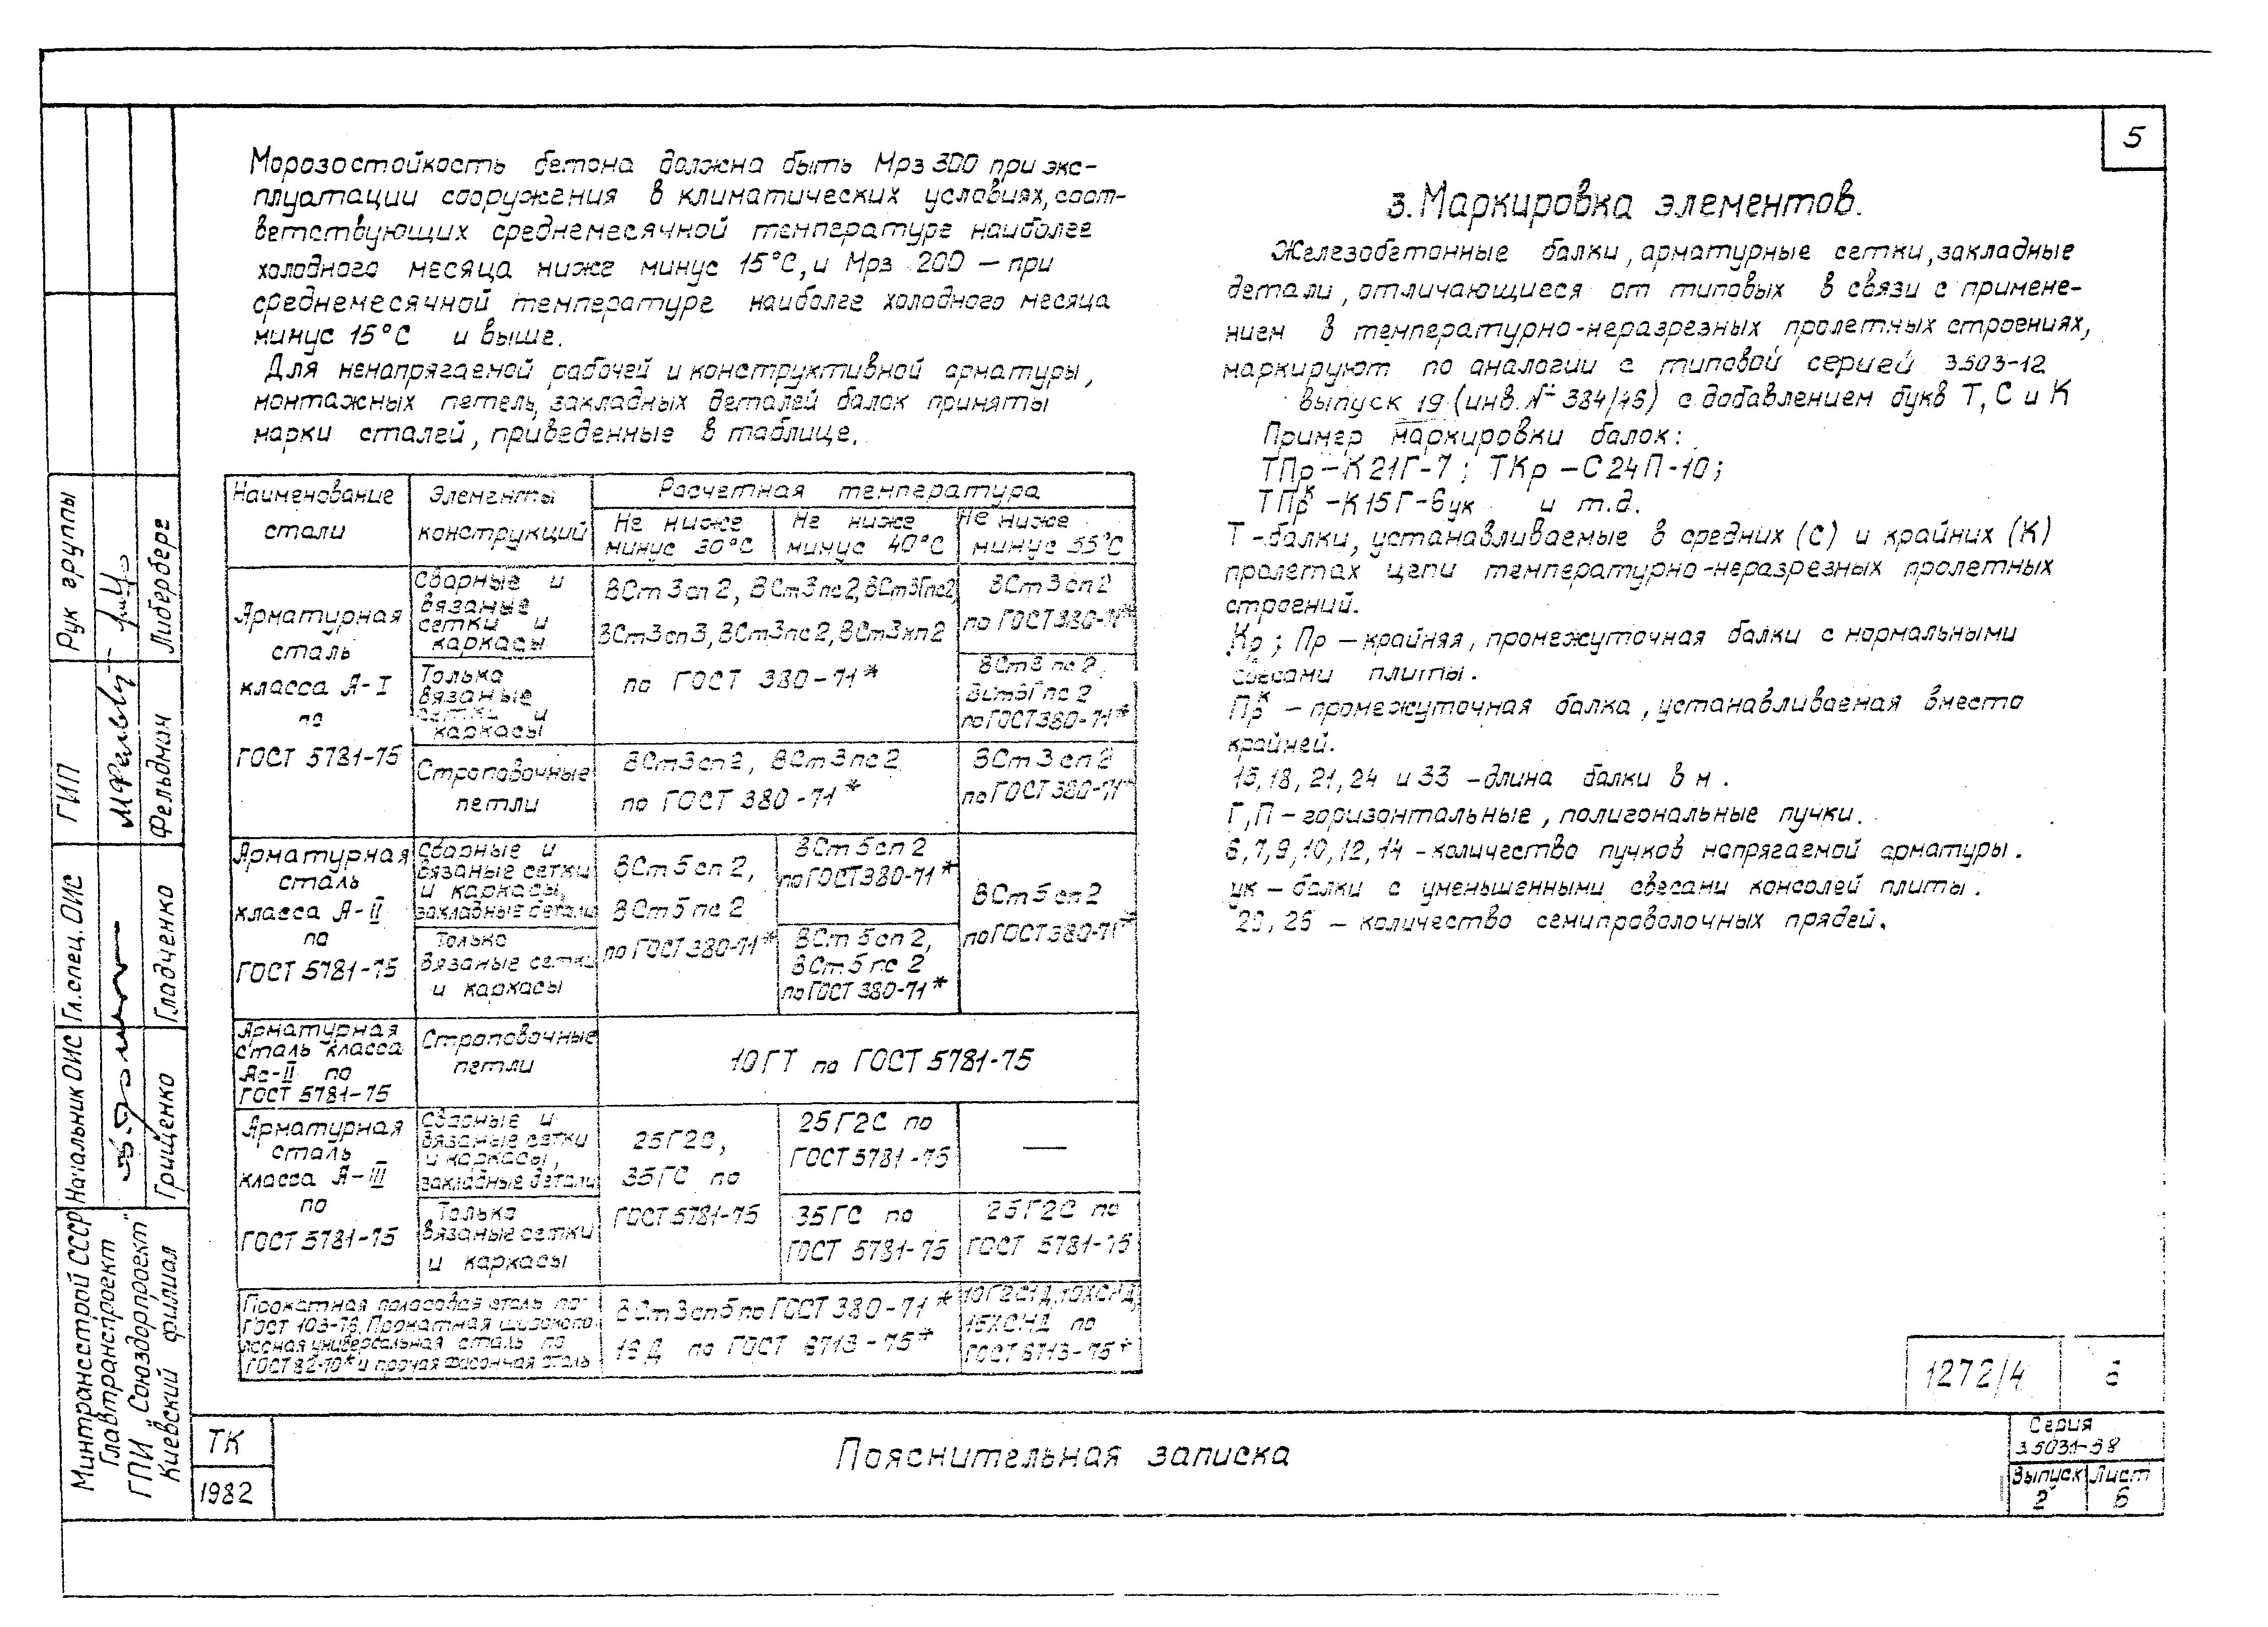 5
Морозостойкость бетона должна быть Мрз 300 при экс-
плуатации сооружения в климатических условиях, соот-
ветствующих среднемесячной температуре наиболее
холодного месяца ниже минус 15°С, и Мрз 200 — при
среднемесячной температуре наиболее холодного месяца
минус 15°С и выше.
Для ненапрягаемой рабочей и конструктивной арматуры,
монтажных петель, закладных деталей балок приняты
марки сталей, приведенные в таблице.
Наименование
стали
Элементы
конструкций
Расчетная температура
Не ниже
минус 30°С
Не ниже
минус 40°С
Не ниже
минус 55°С
Арматурная
сталь
класса А-I
по
ГОСТ 5781-75
Сварные и
вязаные
сетки и
каркасы
ВСт3сп2, ВСт3пс2, ВСт3Гпс2,
ВСт3сп3, ВСт3пс2, ВСт3кп2
по ГОСТ 380-71*
ВСт3сп2
по ГОСТ 380-71*
Только
вязаные
сетки и
каркасы
ВСт3пс2,
ВСт3Гпс2
по ГОСТ 380-71*
Строповочные
петли
ВСт3сп2, ВСт3пс2
по ГОСТ 380-71*
ВСт3сп2
по ГОСТ 380-71*
Арматурная
сталь
класса А-II
по
ГОСТ 5781-75
Сварные и
вязаные сетки
и каркасы,
закладные детали
ВСт5сп2,
ВСт5пс2
по ГОСТ 380-71*
ВСт5сп2
по ГОСТ 380-71*
ВСт5сп2
по ГОСТ 380-71*
Только
вязаные сетки
и каркасы
ВСт5сп2,
ВСт5пс2
по ГОСТ 380-71*
Арматурная
сталь класса
Ас-II по
ГОСТ 5781-75
Строповочные
петли
10ГТ по ГОСТ 5781-75
Арматурная
сталь
класса А-III
по
ГОСТ 5781-75
Сварные и
вязаные сетки
и каркасы,
закладные детали
25Г2С,
35ГС по
ГОСТ 5781-75
25Г2С по
ГОСТ 5781-75
—
Только
вязаные сетки
и каркасы
35ГС по
ГОСТ 5781-75
25Г2С по
ГОСТ 5781-75
Прокатная полосовая сталь по
ГОСТ 103-76. Прокатная широкопо-
лосная универсальная сталь по
ГОСТ 82-70* и прочая фасонная сталь
ВСт3сп5 по ГОСТ 380-71*
16Д по ГОСТ 6713-75*
10Г2СНД, 10ХСНД,
15ХСНД по
ГОСТ 6713-75*
3. Маркировка элементов.
Железобетонные балки, арматурные сетки, закладные
детали, отличающиеся от типовых в связи с примене-
нием в температурно-неразрезных пролетных строениях,
маркируют по аналогии с типовой серией 3.503-12
выпуск 19 (инв. № 384/46) с добавлением букв Т, С и К
Пример маркировки балок:
ТПр-К21Г-7; ТКр-С24П-10;
ТПрᴷ-К15Г-6ук и т.д.
Т - балки, устанавливаемые в средних (С) и крайних (К)
пролетах цепи температурно-неразрезных пролетных
строений.
Кр; Пр — крайняя, промежуточная балки с нормальными
свесами плиты.
Прᴷ — промежуточная балка, устанавливаемая вместо
крайней.
15, 18, 21, 24 и 33 - длина балки в м.
Г, П - горизонтальные, полигональные пучки.
6, 7, 9, 10, 12, 14 - количество пучков напрягаемой арматуры.
ук — балки с уменьшенными свесами консолей плиты.
— количество семипроволочных прядей.
Рук группы
Либерберг
ГИП
Фельдман
Гл. спец. ОИС
Гладченко
Начальник ОИС
Грищенко
Минтрансстрой СССР
Главтранспроект
ГПИ „Союздорпроект"
Киевский филиал
ТК
1982
Пояснительная записка
1272/4 6
Серия
3.503.1-58
Выпуск
2
Лист
6